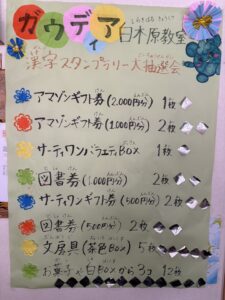 ガウディア
しらきばるきょうしつ
白木原教室
漢字スタンプラリー大抽選会
アマゾンギフト券(2,000円分) 1枚
アマゾンギフト券(1,000円分) 2枚
サーティワンバラエティBOX 1枚
図書券(1,000円分) 2枚
サーティワンギフト券(500円分) 2枚
図書券(500円分) 2枚
文房具(茶色BOX) 5枚
お菓子 白BOXから3コ 12枚